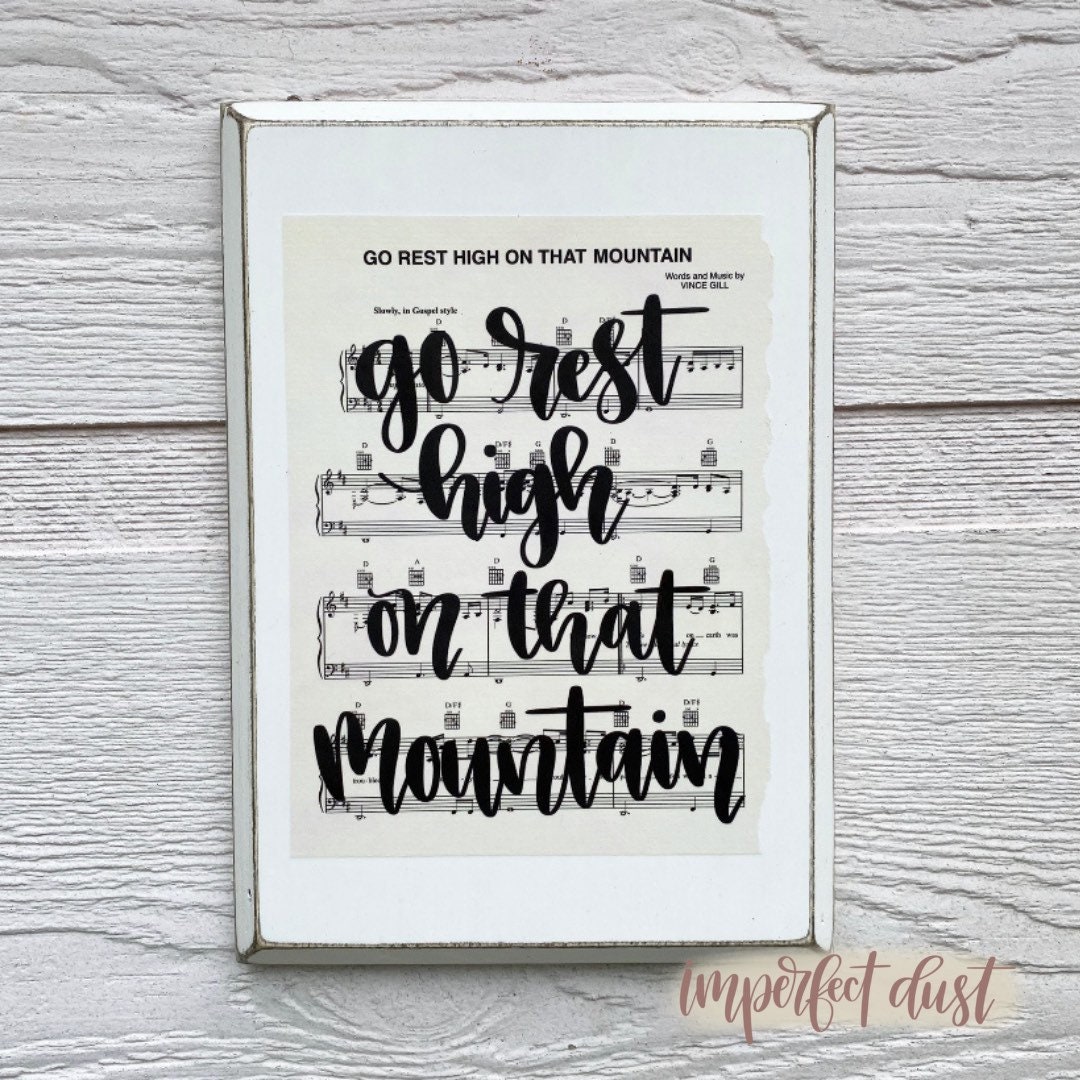 GO REST HIGH ON THAT MOUNTAIN
Words and Music by
VINCE GILL
Slowly, in Gospel style
D D
go rest
D D/F# G D G
high
D A D D G
on that
on earth was
D D/F# G D/F#
mountain
imperfect dust